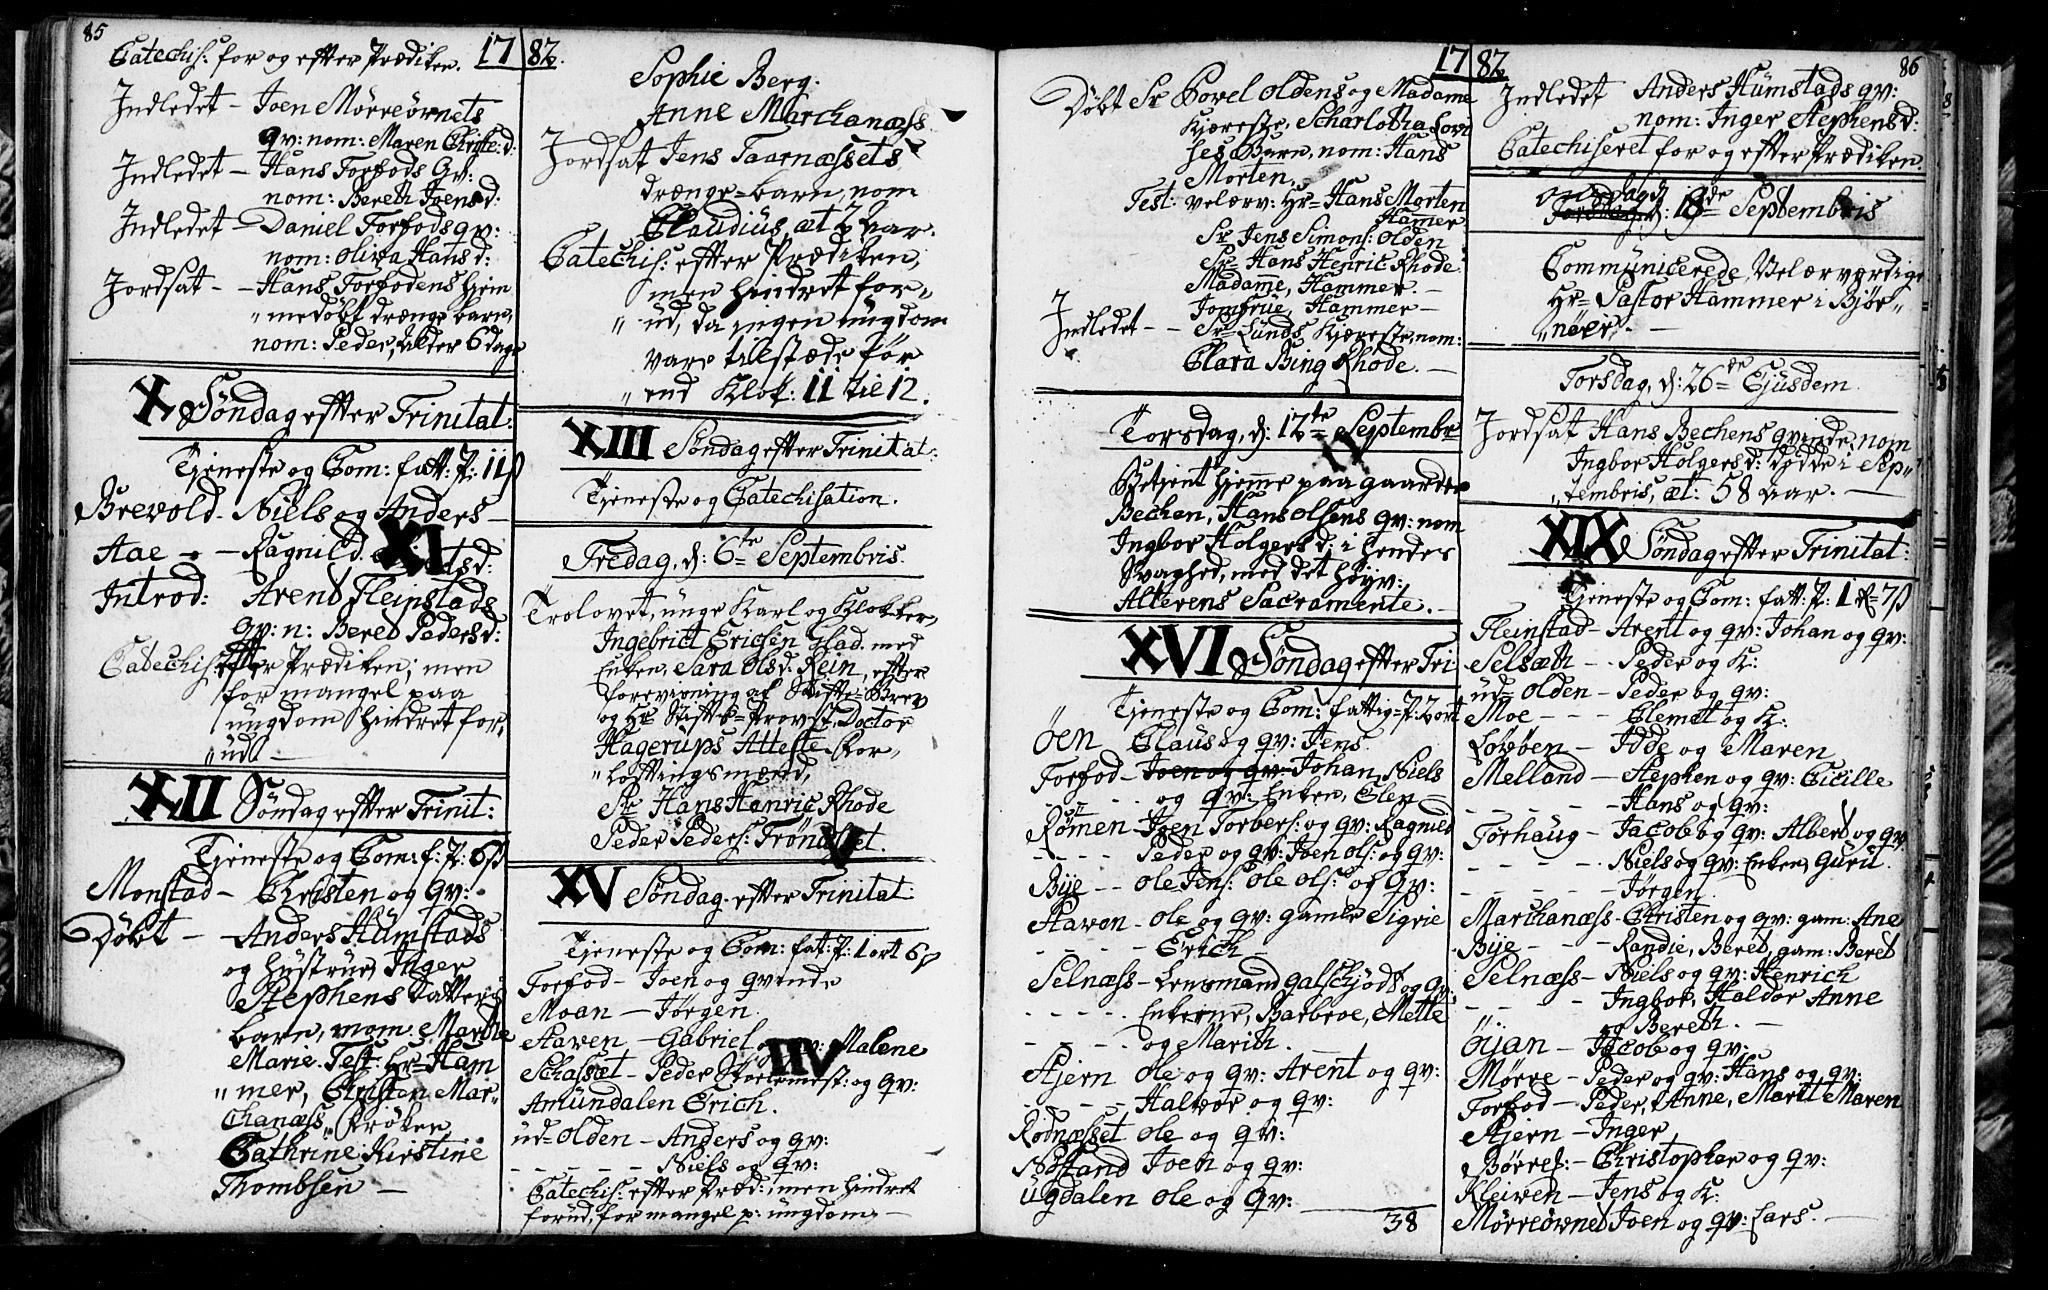 85
Catechis: for og efter Prædiken. 17
Indledet – Joen Mørreörnets
qv: nom: Maren Christe: d:
Indledet – Hans Forfods Qv:
nom: Bereth Joens d:
Indledet – Daniel Forfods qv:
nom: oliva Hans d:
Jordsat – – Hans Forfodens hiem
„ medöbt drænge barn,
nom: Peder, alder 6 dage
X Söndag efter Trinitat:
Tjeneste og Com: fatt: P: 11 β
Brevold – Niels og Anders –
Aae – – Ragnild. XI
Introd: Arent Fleinstads
qv: n: Beret Peders d:
Catechis: efter Prædiken; men
for mangel paa
ungdom hindret for„
„ud –
XII Söndag efter Trinit:
Tjeneste og Com: f: P: 6 β
Monstad – Christen og qv:
Döbt – Anders Hümstads
og hustrue Inger
Stephens datters
barn, nom. Marthe
Marie. Test: Hr= Ham
„mer, Christen Mar„
chanæss, Fröken
Cathrine Kirstine
Thombsen –
82.
Sophie Berg.
Anne Marchanæss
Jordsat Jens Taarnæssets
drænge=barn, nom
Claudius, æt 2 aar.
Catechis: efter Prædiken,
men hindret for„
„ ud, da ingen ungdom
vare tilstæde för
„ end Klok: 11 til 12.
XIII Söndag efter Trinitat:
Tjeneste og Catechisation.
Fredag, d: 6te Septembris.
Trolovet, unge Karl og Klokker,
Ingebrict Ericsen Stad. med
Enken, Sara Ols d: Rein, efter
forevisning af Skifte=Brev
og Hr Stifts=Provst, Doctor
Hagerups Atteste. For„
„lovtingsmænd,
Sr Hans Henric Rhode
Peder Peders: Frönesset.
V
XV Söndag efter Trinitat
Tjeneste og Com: fat: P: 1 ort 6 β
Forfod – Joen og qvinde
Moan – Jörgen.
Staven – Gabriel og qv: Malene
IIV
Schasæt – Peder Skolemest: og qv:
Amündalen Erich.
ud=olden – Anders og qv:
– – – – – Niels og qv:
Catechis: efter Præd:, men hindret
forud, for mangel p: ungdom –
17
Döbt Sr Povel oldens og Madame
Kjæreste, Scharlotha Lovi
ses Barn, nom: Hans
Morten.
Test: velærv: Hr= Hans Morten
Hamer
Sr Jens Simons: olden
Sr Hans Henric Rhode
Madame, Hammer. –
Jomfrue, Hammer –
Indledet – – Sr Lunds Kjæreste, nom:
Clara Bing Rhode. –
Torsdag, d: 12te Septembr
IV
Betjent hjemme paa gaarden
Bechen, Hans olsens qv: nom
Ingbor Holgers d: i hendes
Svaghed, med det höyv:
Alterens Sacramente. –
XVI Söndag efter Tri
Tjeneste og Com: fattig=P: 2 ort
öen Claus og qv: Jens.
Forfod – Joen og qv: Johan, Niels
– – – – og qv: Enken, Elen –
Römen – Joen Torbers: og qv: Ragnild
– – – – Peder og qv: Joen ols: og qv:
Bÿe – – ole Jens: ole ols: og qv:
Staven – ole og qv: gamle Sigrie
– – – – Erich –
Selnæss – Lensmand galschjödt og qv:
– – – – – Enkerne, Barbroe, Mette
– – – – og Marith.
Stjern ole og qv: Arent og qv:
– – – – Halvor og qv:
Rödnæsset ole og qv:
Nöstand Joen og qv:
ugdalen ole og qv: ———
38
82 86
Indledet Anders Hümstads qv:
nom: Inger Stephens d:
Catechiseret for og efter Prædiken.
onsdag
Torsdag d: 18de Septembris
Communicerede, Velærværdige
Hr= Pastor Hammer i Björ„
„nöer. –
Torsdag, d: 26de Ejusdem
Jordsat Hans Bechens qvinde, nom
Ingbor Holgers d: dödde i Sep„
„tembris, æt: 58 aar. –
XIX Söndag efter Trinitat:
Tjeneste og Com: fatt: P: 1 R= 7 β
Fleinstad – Arent og qv: Johan og qv:
Selsæth – Peder og K:
ud=olden – Peder og qv:
Moe – – – Clemet og K:
Lövöen – Idde og Maren
Melland – Stephen og qv: Cicille
– – – – – Hans og qv:
Forhaug – Jacob og qv: Albert og qv
– – – – – Niels og qv: Enken, Guril.
– – – – – Jörgen
Marchanæss – Christen og qv: gam: Ane
Bÿe – – – Randie, Beret, gam: Beret
Selnæss – Niels og qv: Henrich
– – – – Ingbor, Haldor Anne
og Bereth. –
öÿan – Jacob og qv:
Mörre – Peder og qv: Hans og qv:
Forfod – Peder, Anne, Marit Maren
Stjern – Inger
Börres: – Christopher og qv:
Kleiven – Jens og K:
Mörreörnet Joen og qv: Lars. –